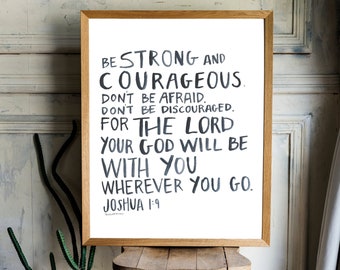 BE STRONG AND
COURAGEOUS.
DON'T BE AFRAID.
DON'T BE DISCOURAGED.
FOR THE LORD
YOUR GOD WILL BE
WITH YOU
WHEREVER YOU GO.
JOSHUA 1:9